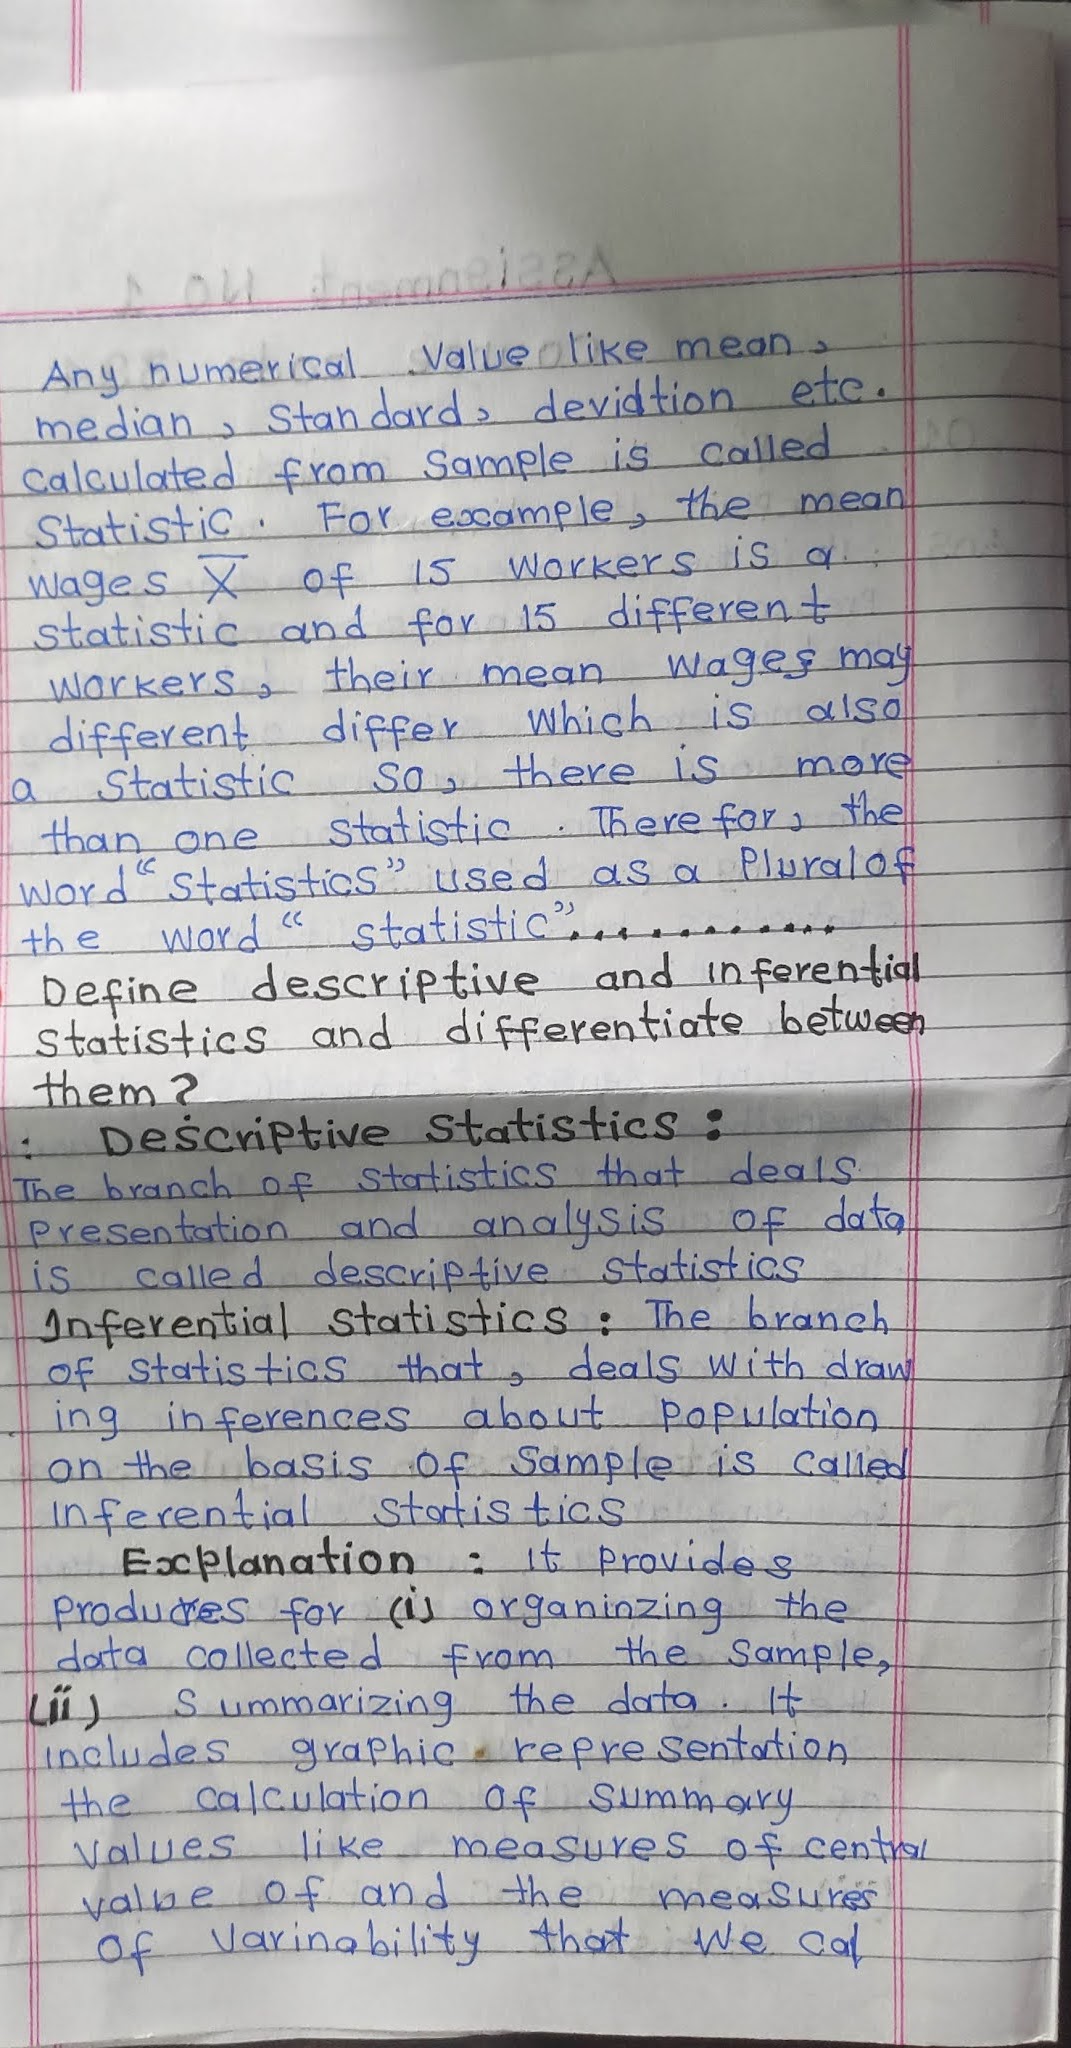 Assignment No 1
Any numerical value like mean,
median, Standard, devidtion etc.
calculated from sample is called
Statistic. For example, the mean
wages X̅ of 15 workers is a
statistic and for 15 different
workers, their mean wages may
different differ which is also
a statistic so, there is more
than one statistic. There for, the
word "statistics" used as a Plural of
the word "statistic"............
Define descriptive and inferential
statistics and differentiate between
them?
: Descriptive Statistics:
The branch of statistics that deals
Presentation and analysis of data
is called descriptive statistics
Inferential statistics: The branch
of statistics that, deals with draw
ing inferences about population
on the basis of Sample is called
inferential statistics
Explanation : it Provides
for (i) organinzing the
data collected from the sample,
(ii) Summarizing the data. It
includes graphic representation
the calculation of summary
values like measures of central
value of and the measures
of varinability that we cal